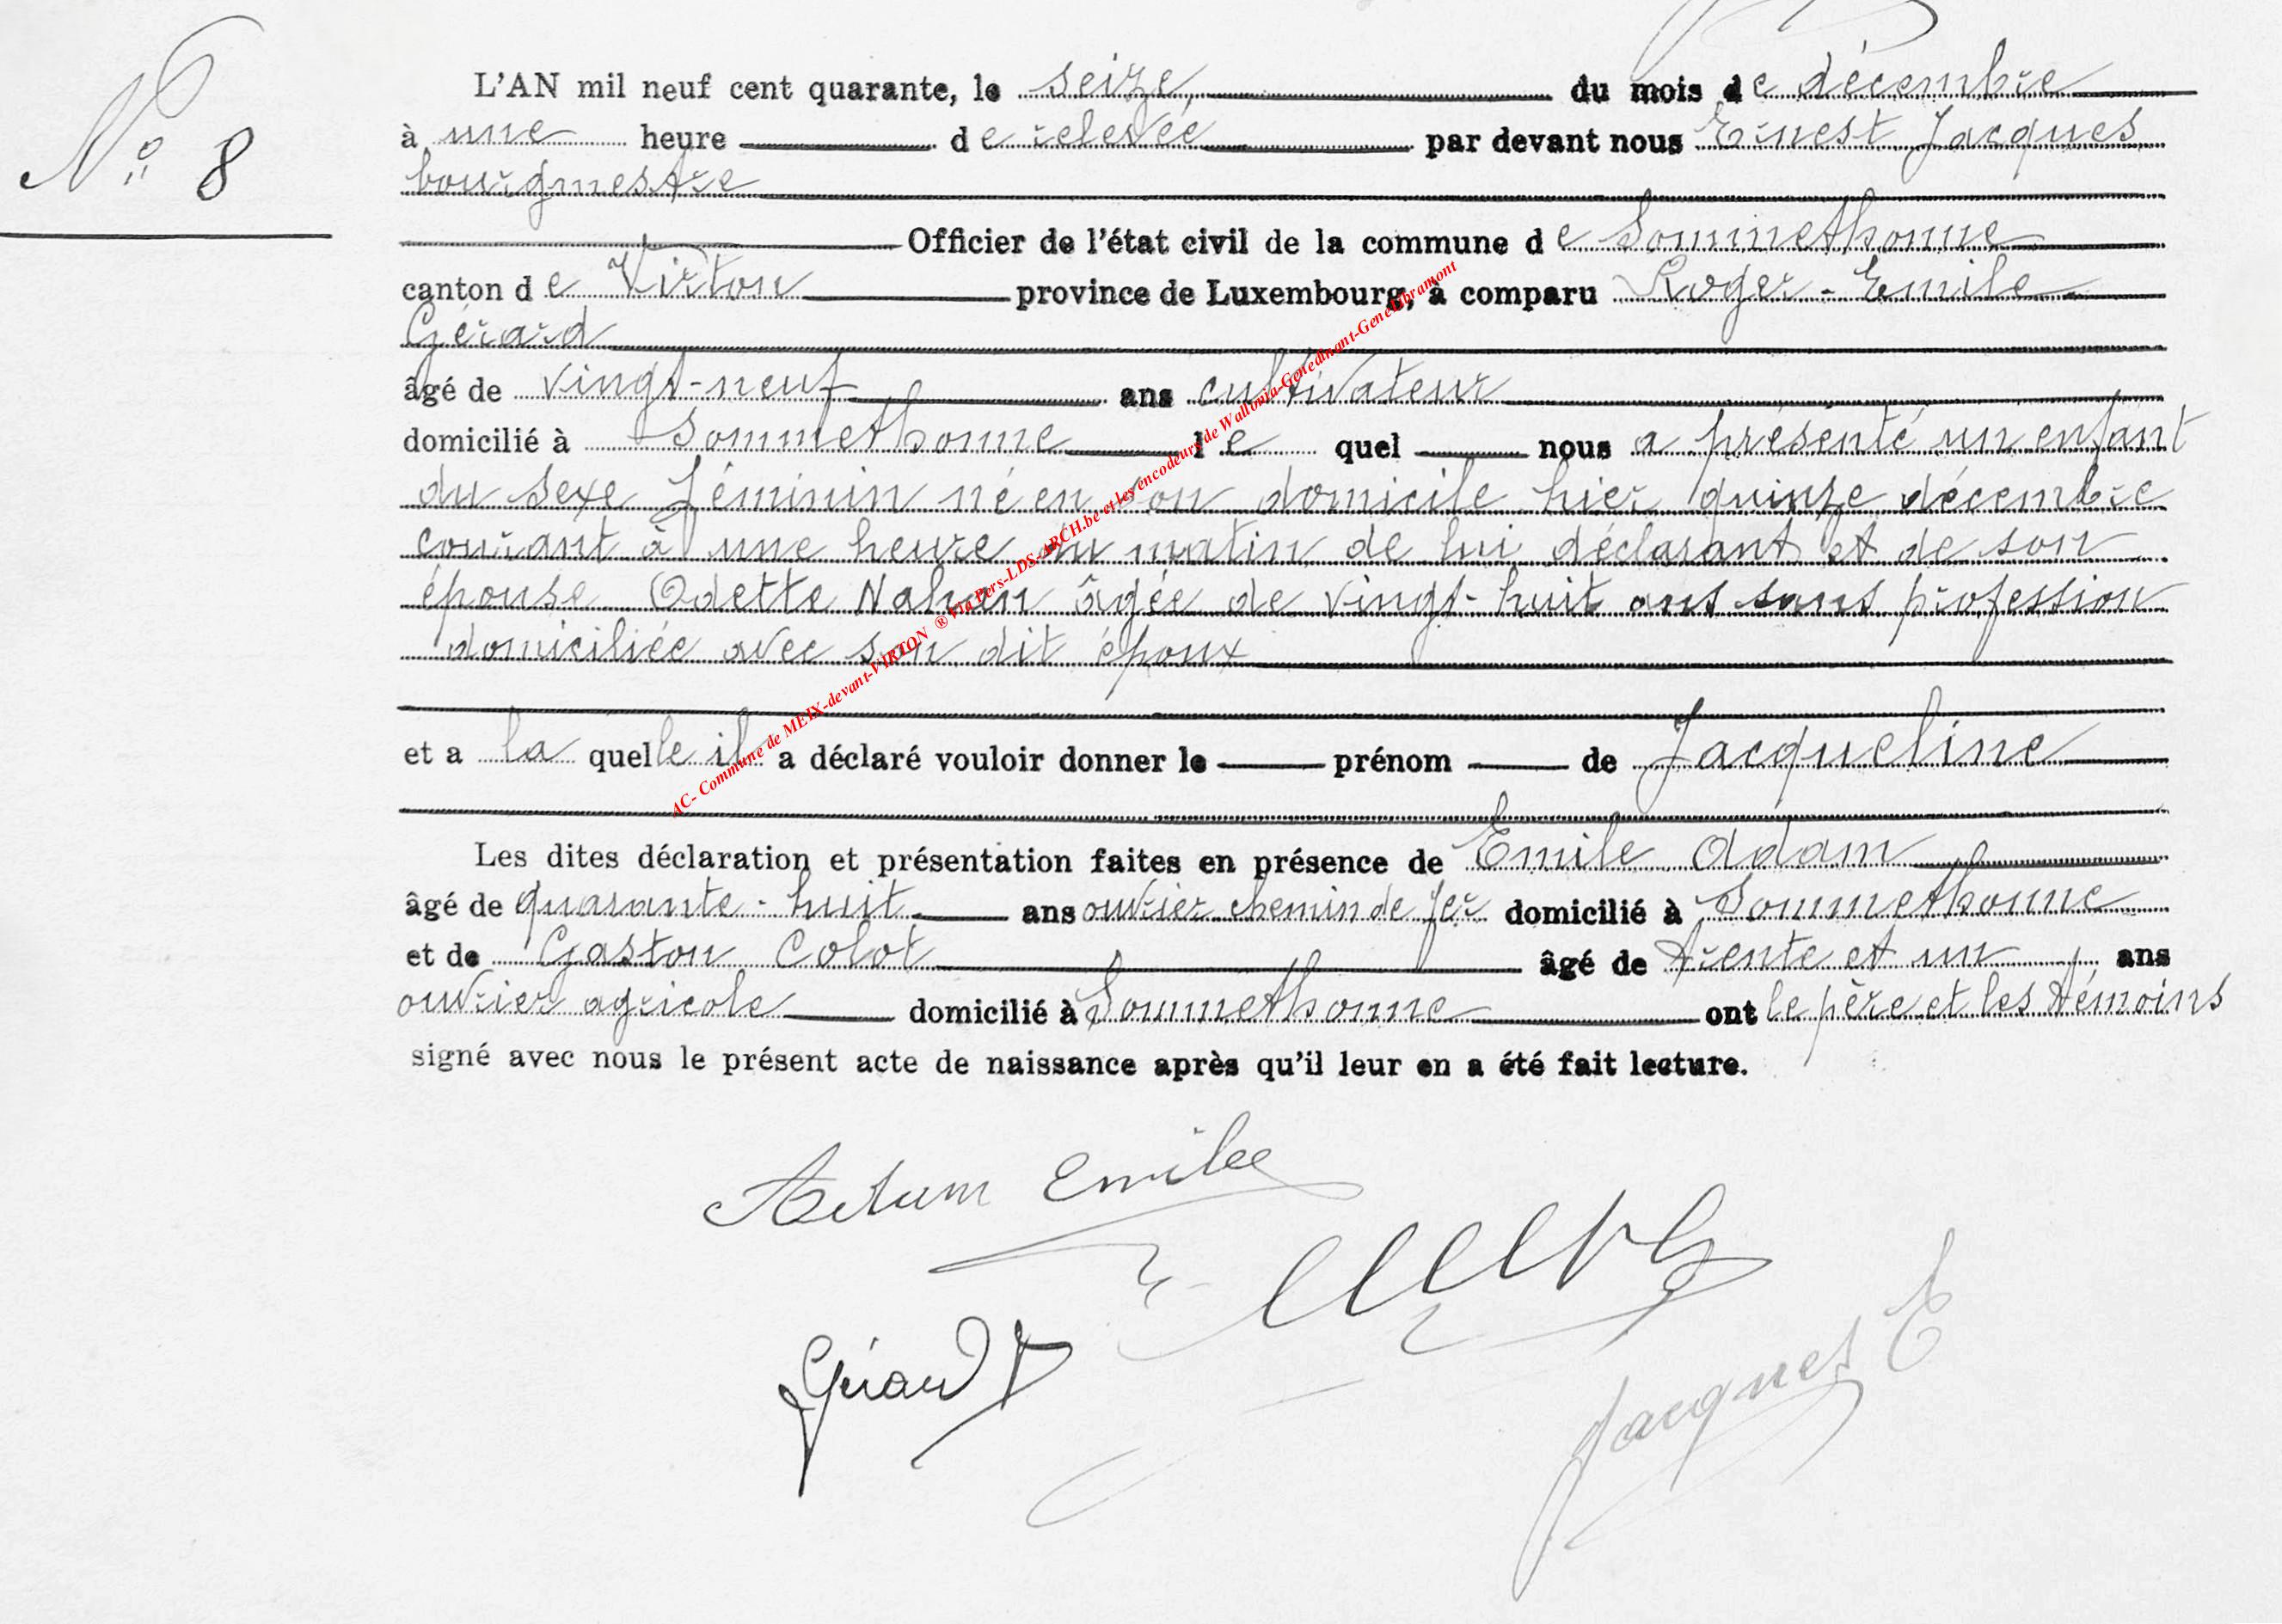 N° 8
L'AN mil neuf cent quarante, le seize, du mois de décembre
à une heure de relevée par devant nous Ernest Jacques
bourgmestre
Officier de l'état civil de la commune de Sommethonne
canton de Virton province de Luxembourg, a comparu Roger-Emile
Gérard
âgé de vingt-neuf ans cultivateur
domicilié à Sommethonne lequel nous a présenté un enfant
du sexe féminin né en son domicile hier quinze décembre
courant à une heure du matin de lui déclarant et de son
épouse Odette Nahan âgée de vingt-huit ans sans profession
domiciliée avec son dit époux
et a laquelle il a déclaré vouloir donner le prénom de Jacqueline
Les dites déclaration et présentation faites en présence de Emile Adam
âgé de quarante-huit ans ouvrier chemin de fer domicilié à Sommethonne
et de Gaston Colot âgé de trente et un ans
ouvrier agricole domicilié à Sommethonne ont le père et les témoins
signé avec nous le présent acte de naissance après qu'il leur en a été fait lecture.
AC- Commune de MEIX-devant-VIRTON ® Via Pers-LDS-ARCH.be et les encodeurs de Wallonia-Genedinant-Genelibramont
Adam Emile
Gérard
Jacques E